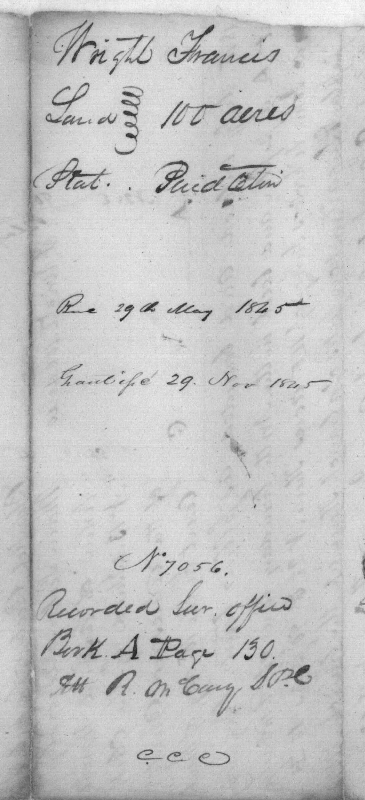 Wright Francis
Land 100 acres
Stat. Pendleton
Rec 29th May 1845
29. Nov 1845
No 7056.
Recorded Sur. office
Book A Page 130.
Att R. McCarey